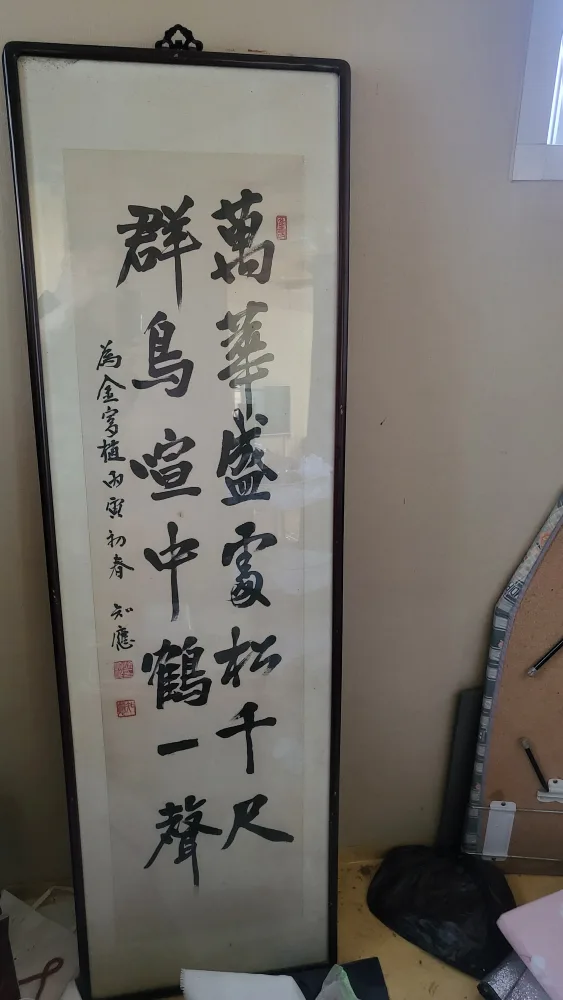 萬華盛處松千尺
群鳥喧中鶴一聲
為金富植丙寅初春 知應